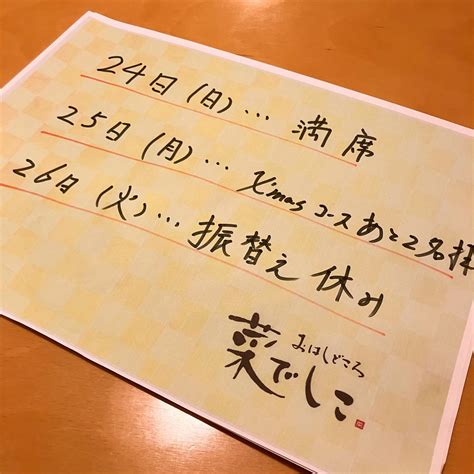 24日(日)… 満席
25日(月)… X'mas コースあと2名様
26日(火)… 振替え休み
おはしどころ
菜でしこ